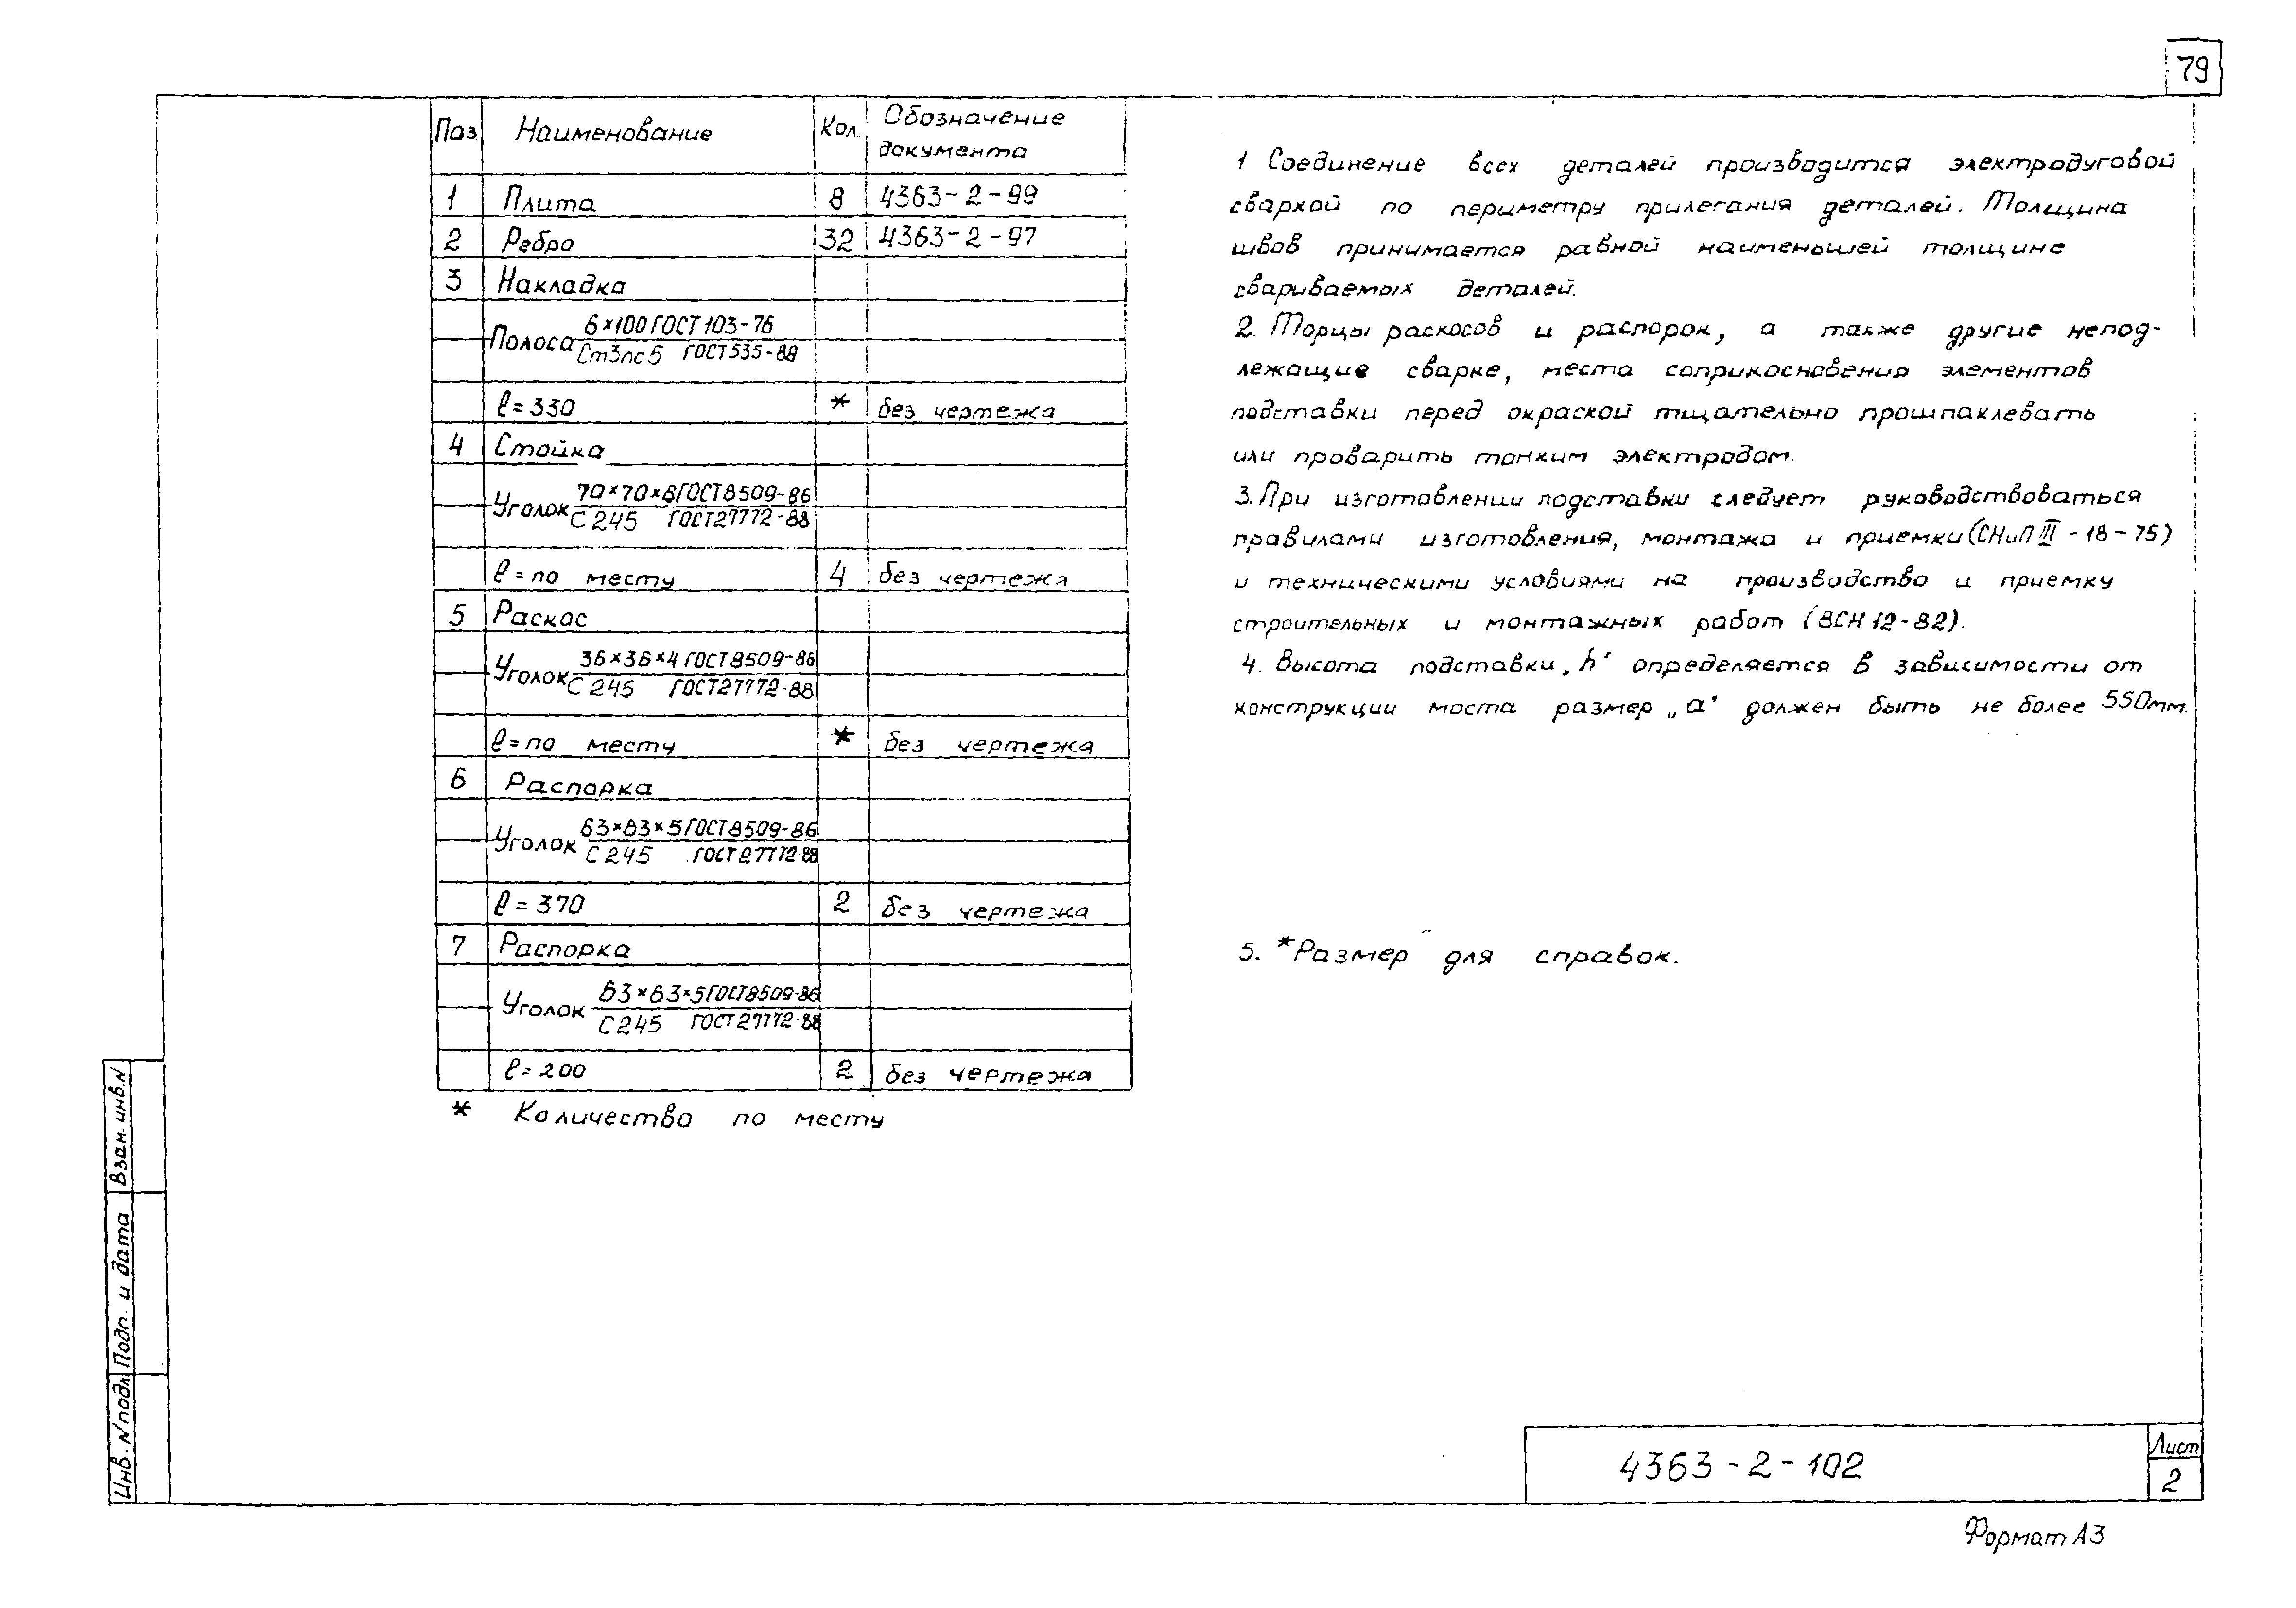 79
Поз. Наименование Кол. Обозначение документа
1 Плита 8 4363-2-99
2 Ребро 32 4363-2-97
3 Накладка
Полоса 6×100 ГОСТ 103-76
Ст3пс5 ГОСТ 535-88
ℓ=330 * без чертежа
4 Стойка
Уголок 70×70×6 ГОСТ 8509-86
С 245 ГОСТ 27772-88
ℓ=по месту 4 без чертежа
5 Раскос
Уголок 36×36×4 ГОСТ 8509-86
С 245 ГОСТ 27772-88
ℓ=по месту * без чертежа
6 Распорка
Уголок 63×63×5 ГОСТ 8509-86
С 245 ГОСТ 27772-88
ℓ=370 2 без чертежа
7 Распорка
Уголок 63×63×5 ГОСТ 8509-86
С 245 ГОСТ 27772-88
ℓ=200 2 без чертежа
* Количество по месту
1 Соединение всех деталей производится электродуговой
сваркой по периметру прилегания деталей. Толщина
швов принимается равной наименьшей толщине
свариваемых деталей.
2. Торцы раскосов и распорок, а также другие непод-
лежащие сварке, места соприкосновения элементов
подставки перед окраской тщательно прошпаклевать
или проварить тонким электродом.
3. При изготовлении подставки следует руководствоваться
правилами изготовления, монтажа и приемки (СНиП III-18-75)
и техническими условиями на производство и приемку
строительных и монтажных работ (ВСН 12-82).
4. Высота подставки „h“ определяется в зависимости от
конструкции моста размер „а“ должен быть не более 550мм.
5. *Размер для справок.
Взам. инв. N
Подп. и дата
Инв. N подл.
4363-2-102
Лист
2
Формат А3